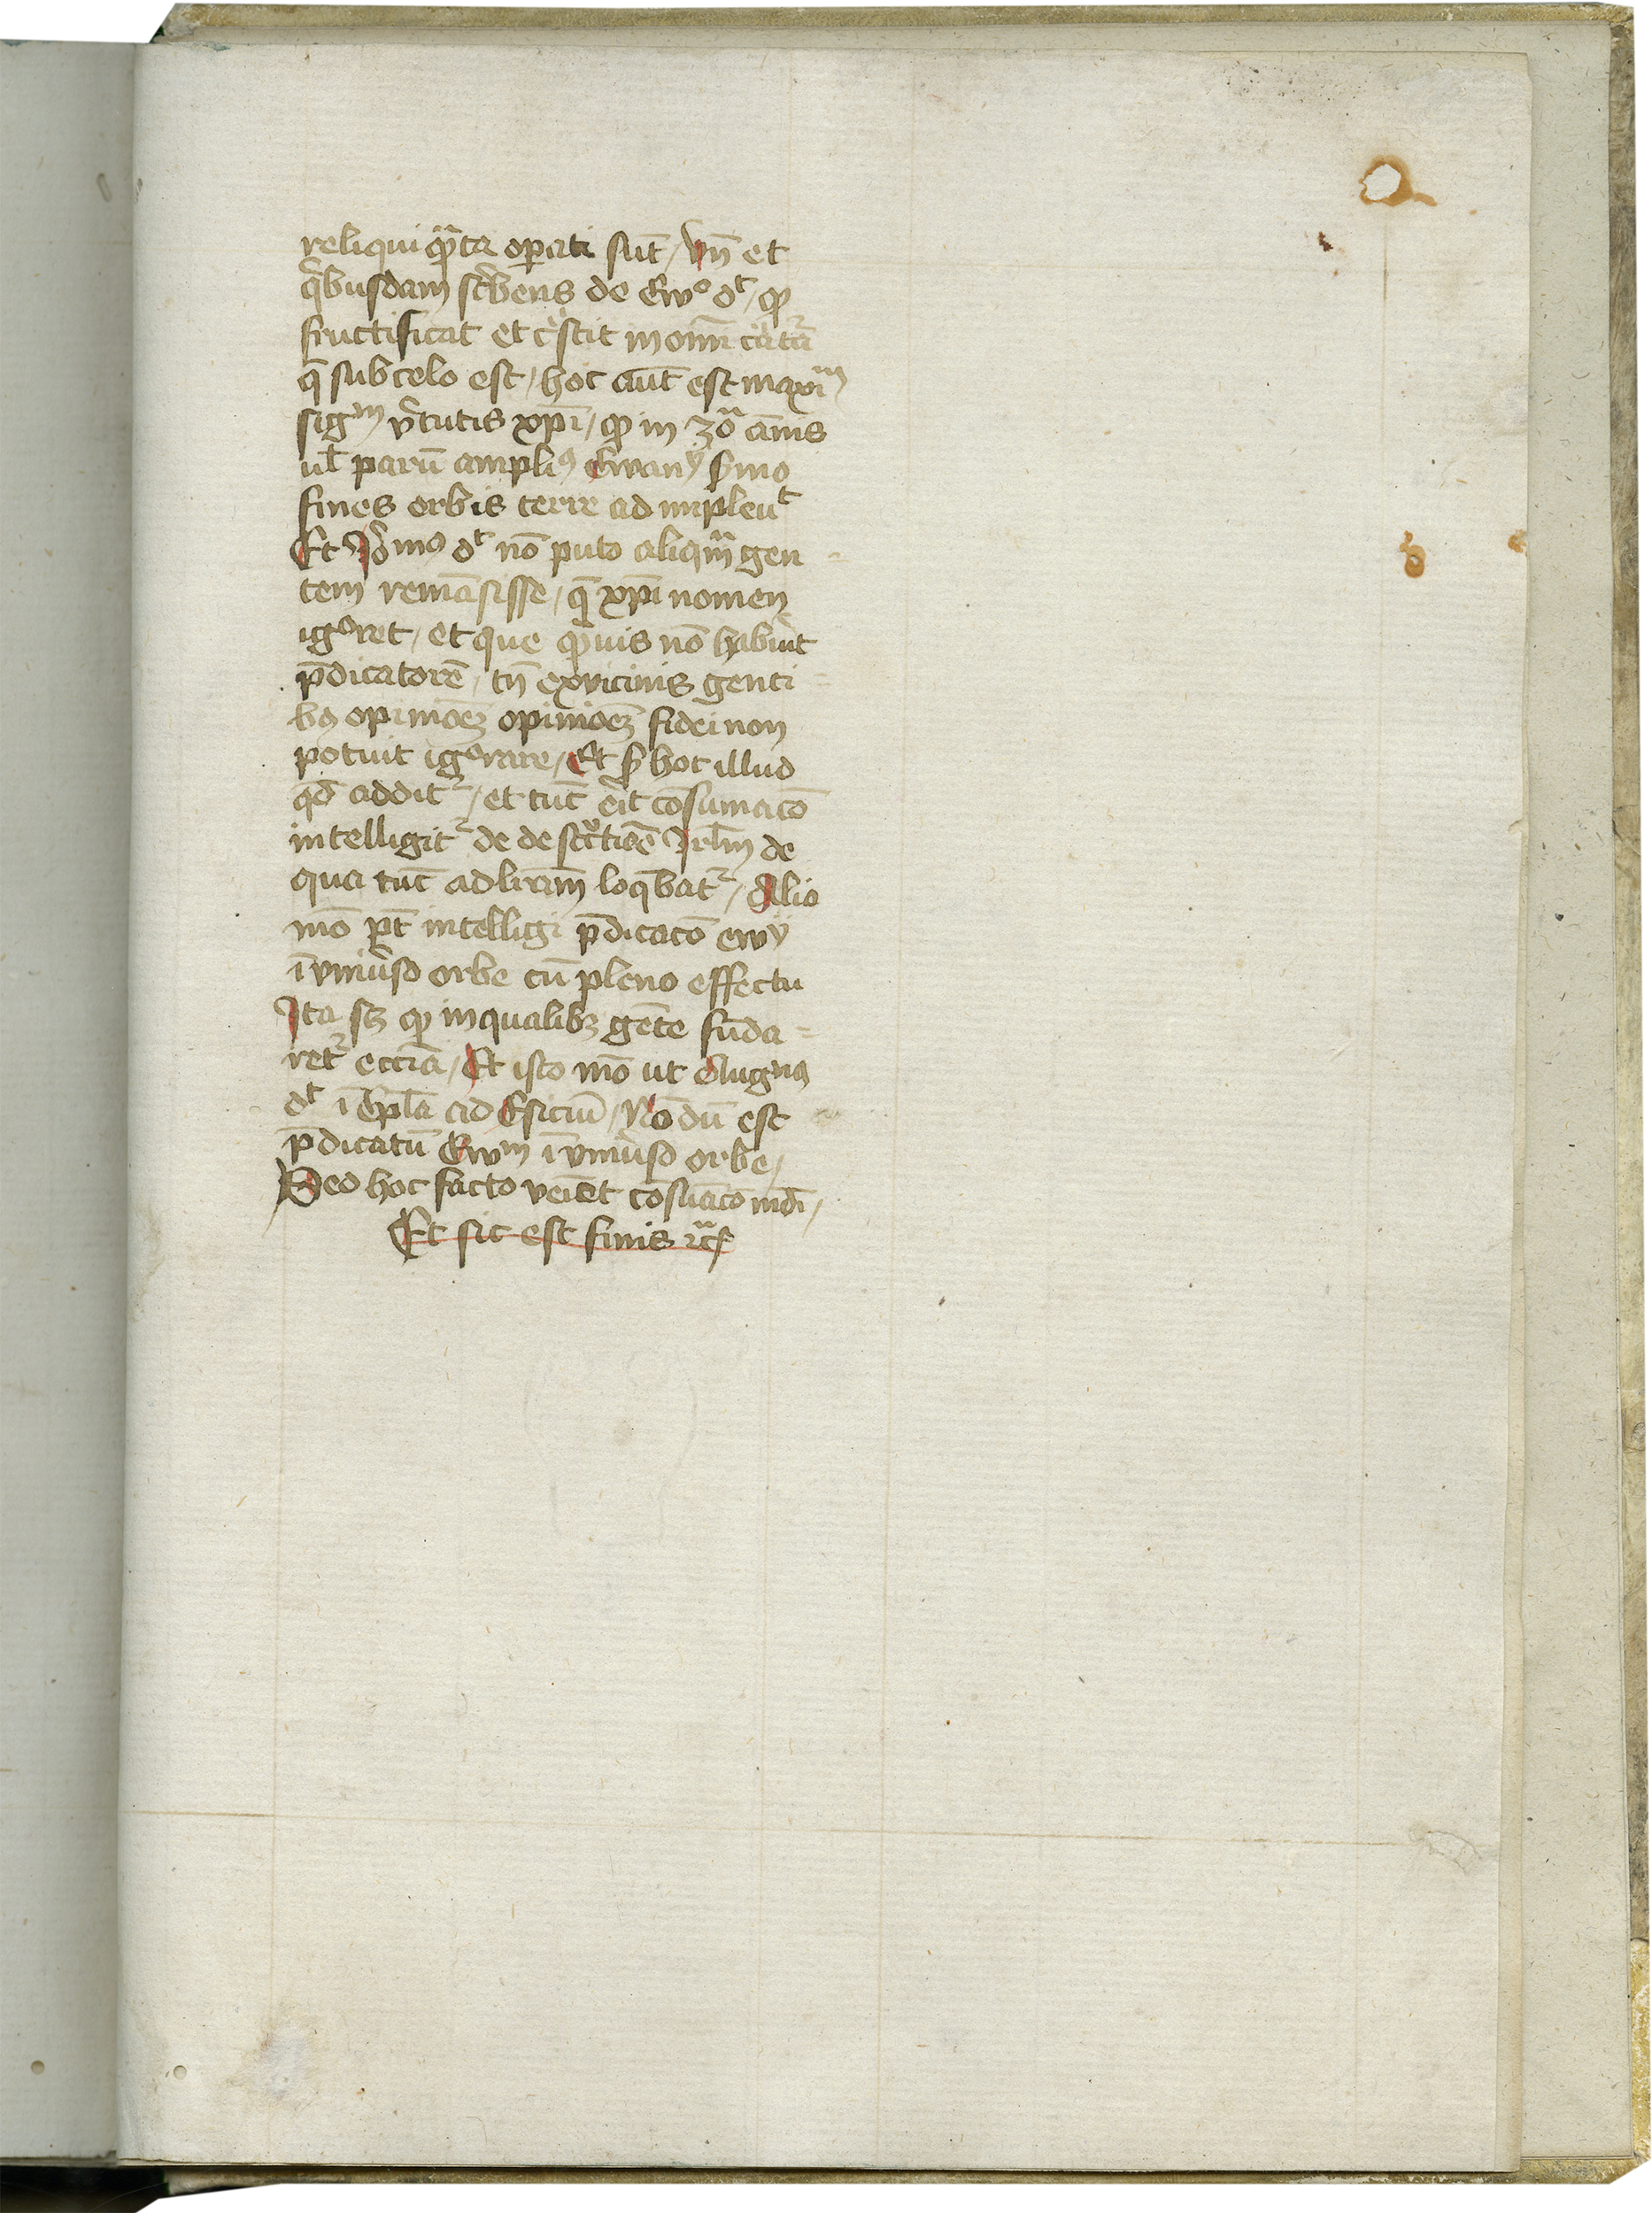 reliqui qͣnta oꝑati sūt / vn̄ et
qͥbusdam scͥbens de Ewº dᵗ / ꝙ
fructificat et cͬscit in om̄i cͬatͣa
q̄ sub celo est / hoc aut̄ est maxiᵐ
sigᵐ v̾tutis xp̄i / ꝙ in 30ᵃ annis
ul̄ parū ampliꝰ Ewanȳ ẜmo
fines orbis terre ad impleuᵗ
Et Iº̄mꝰ dᵗ nō puto aliqᵃm gen
tem remāsisse / q̄ xp̄i nomen
igºret / et que qͣuis nō habuͥt
p̄dicatorē / tn̄ ex vicinis genti=
bꝫ opinioeꝫ opinioeꝫ fidei non
potuit igºrare / Et ẜ hoc illud
qd̄ additᷣ / et tūc erit cōsumacō
intelligitᷣ de destructiōe Irl̄m de
qua tūc ad lram̄ loq̄batᷣ / Alio
mō pt̄ intelligi p̄dicacō ewȳ
ī vniu̾so orbe cū pleno effectu
Ita sꝫ ꝙ in qualibꝫ gēte funda=
retᷣ ecc̄ia / Et isto mō ut Augᵘꝰ
dᵗ ī Ep̄la ad Esiciū / Nō dū est
p̄dicatū Ewᵐ ī vniu̾so orbe /
Sed hoc facto veniet cōsūacō mūdi /
Et sic est finis ꝛcͣ